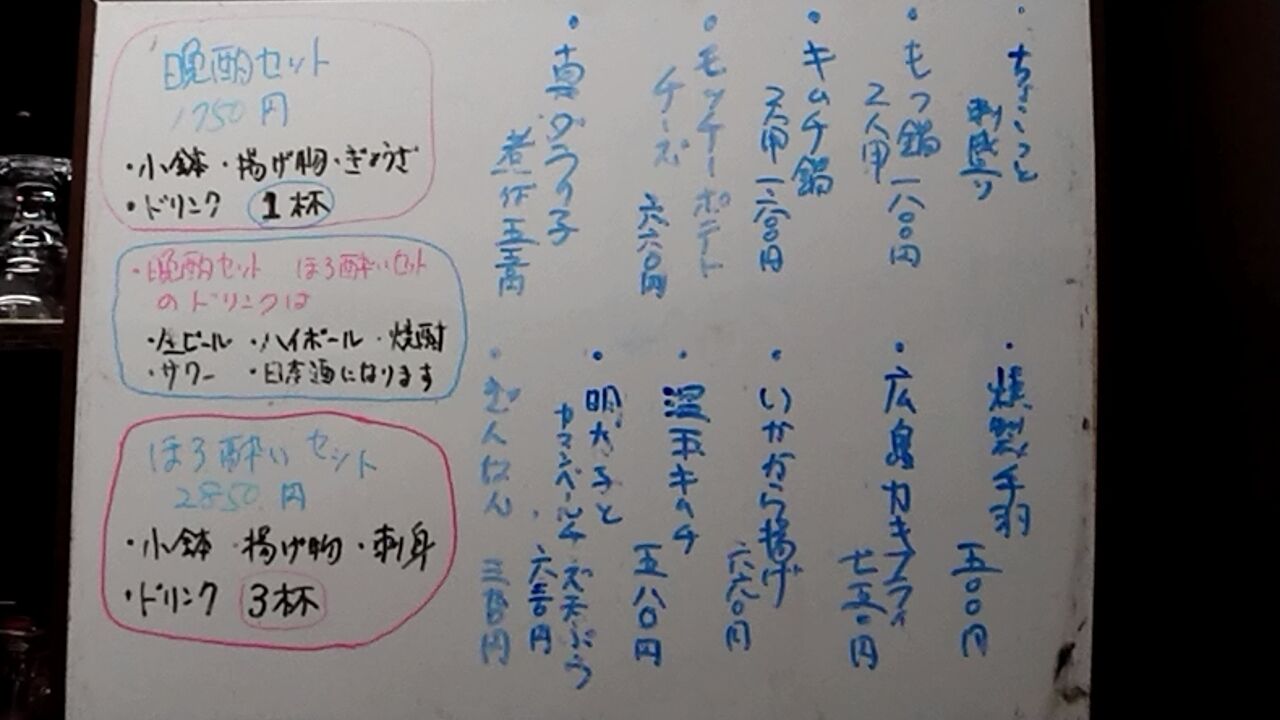 晩酌セット
1750円
・小鉢・揚げ物・ぎょうざ
・ドリンク 1杯
・晩酌セット ほろ酔いセット
のドリンクは
・生ビール ・ハイボール ・焼酎
・サワー ・日本酒になります
ほろ酔いセット
2850円
・小鉢・揚げ物・刺身
・ドリンク 3杯
・ちょこっと
刺盛り
・もつ鍋
2人甲 一八〇〇円
・キムチ鍋
2人甲 一六〇〇円
・モッチーポテト
チーズ 六六〇円
・真ダラの子
煮付 五五〇円
・燻製手羽
五〇〇円
・広島カキフライ
七五〇円
・いかから揚げ
六六〇円
・温玉キムチ
五八〇円
・明太子と
カマンベールチーズ天ぷら
六三〇円
・ぎんなん 三五〇円